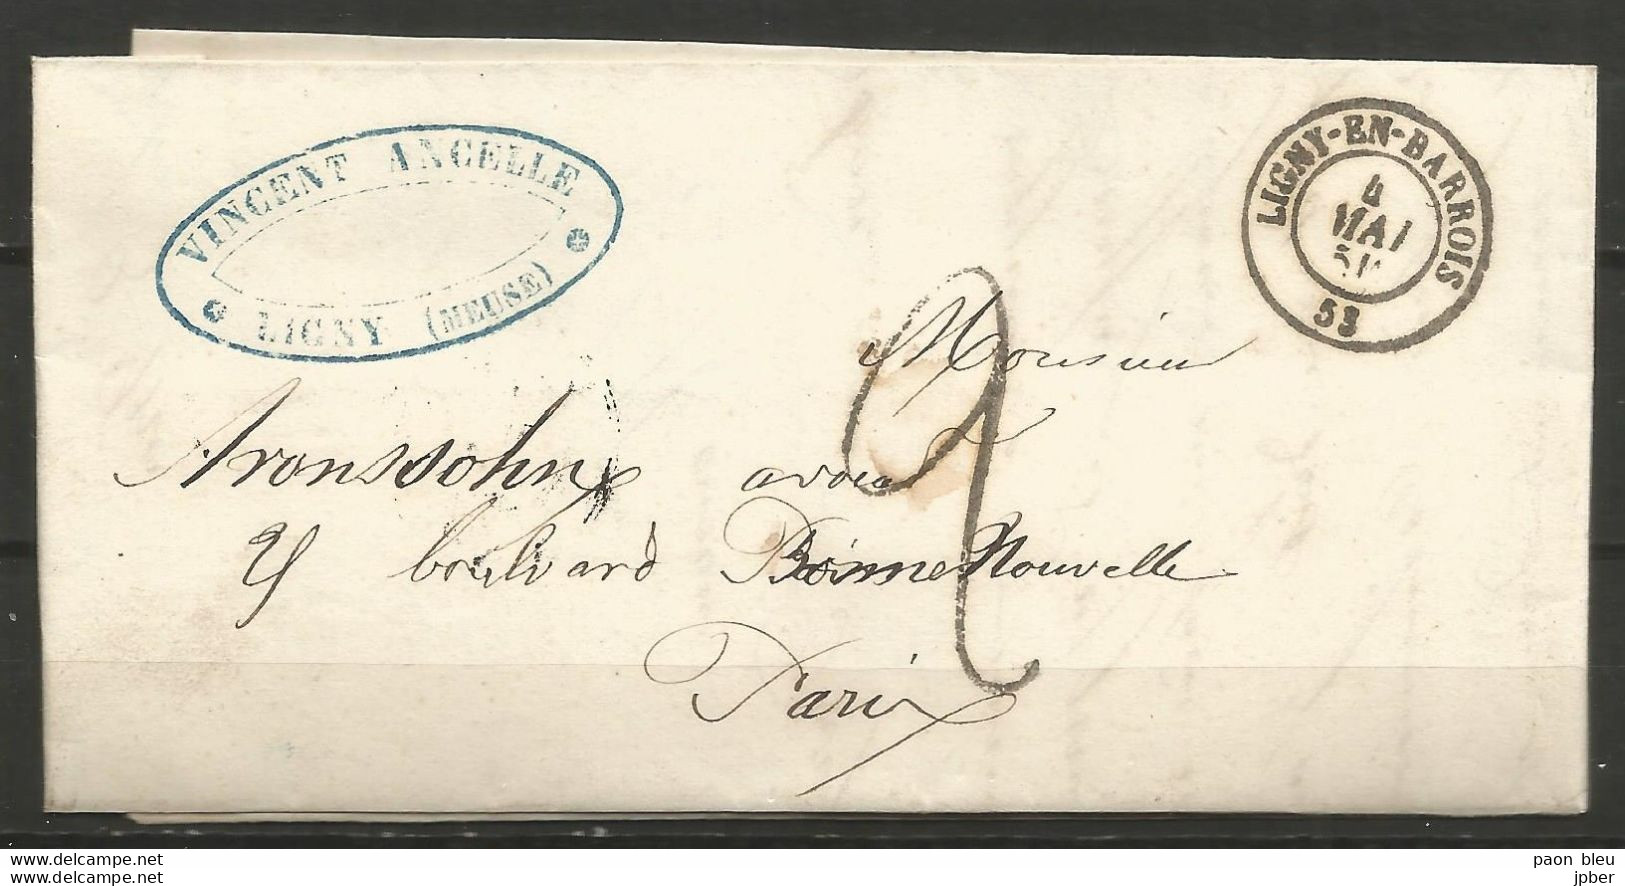 VINCENT ANCELLE
LIGNY (MEUSE)
LIGNY-EN-BARROIS
4
MAI
53
2
Monsieur
Aronssohn avoué
boulevard Bonne Nouvelle
Paris
www.delcampe.net
www.delcampe.net
paon bleu
jpber